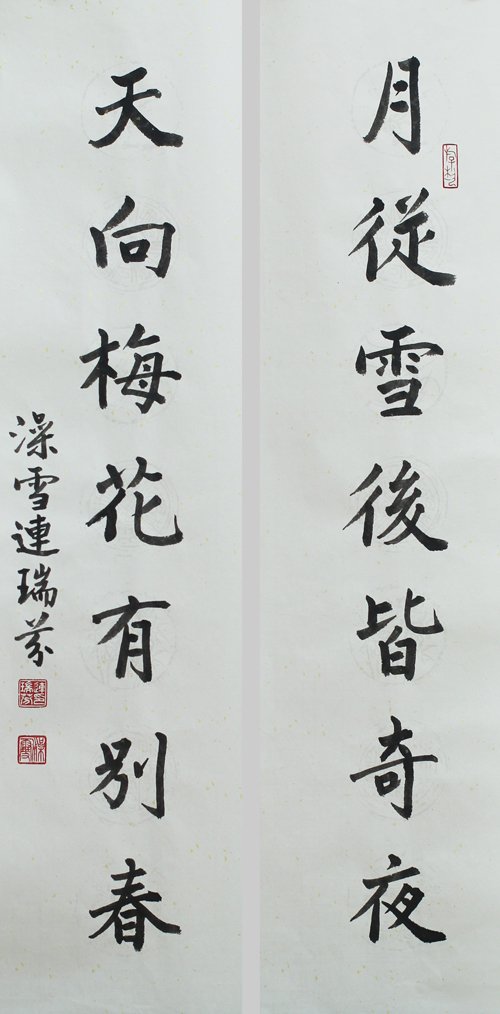 月從雪後皆奇夜
天向梅花有別春
澡雪連瑞芬